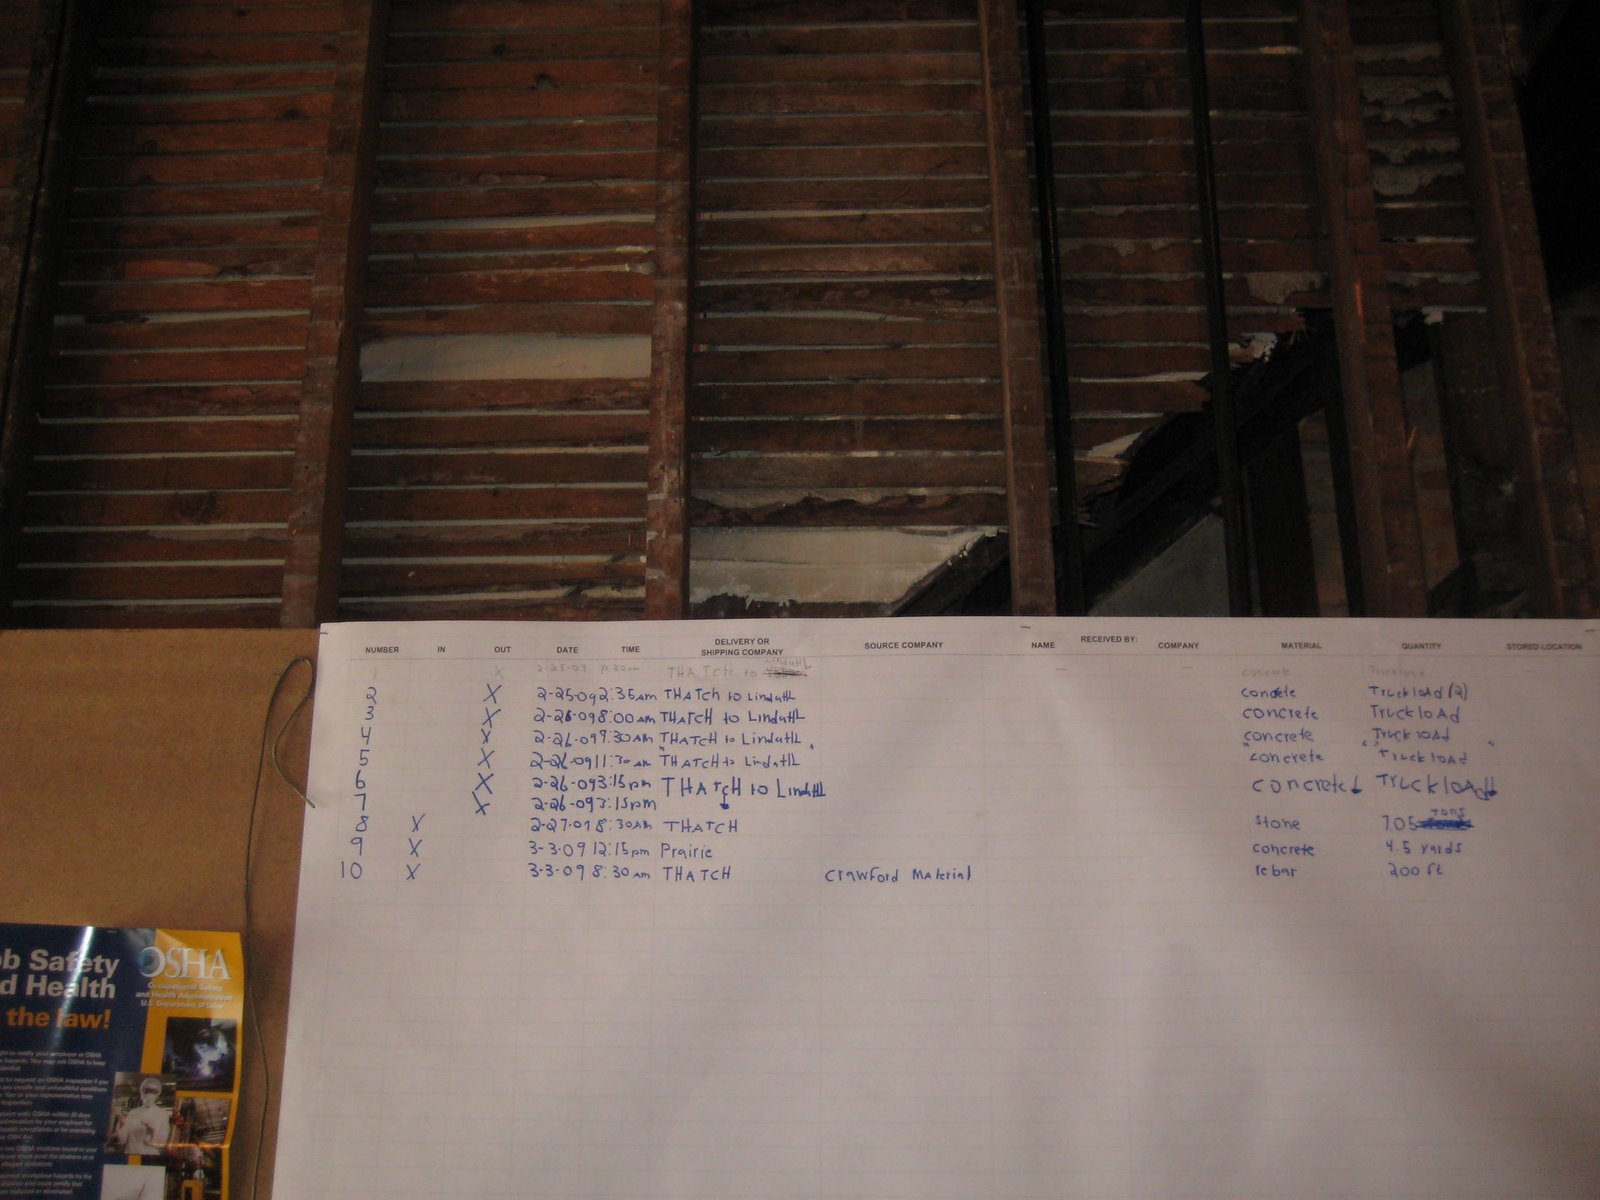 NUMBER IN OUT DATE TIME DELIVERY OR SHIPPING COMPANY SOURCE COMPANY NAME RECEIVED BY: COMPANY MATERIAL QUANTITY STORED LOCATION
X THATCH to LindahL concrete Truckload
2 X 2-25-09 2:35am THATCh to LindahL concrete Truckload (2)
3 X 2-26-09 8:00am THATCH to LindahL concrete TruckloAd
4 X 2-26-09 9:30am THATCH to LindahL concrete Truckload
5 X 2-26-09 11:30am "THATCH to LindahL" "concrete" "Truckload"
6 X 2-26-09 3:15pm THATCH to LindahL concrete Truckload
7 X 2-26-09 3:15pm
8 X 2-27-09 8:30Am THATCH stone 7.05 Tons
9 X 3-3-09 12:15pm Prairie concrete 4.5 yards
10 X 3-3-09 8:30am THATCH Crawford Material rebar 200 ft
ob Safety
d Health
the law!
OSHA
Occupational Safety
and Health Administration
U.S. Department of Labor